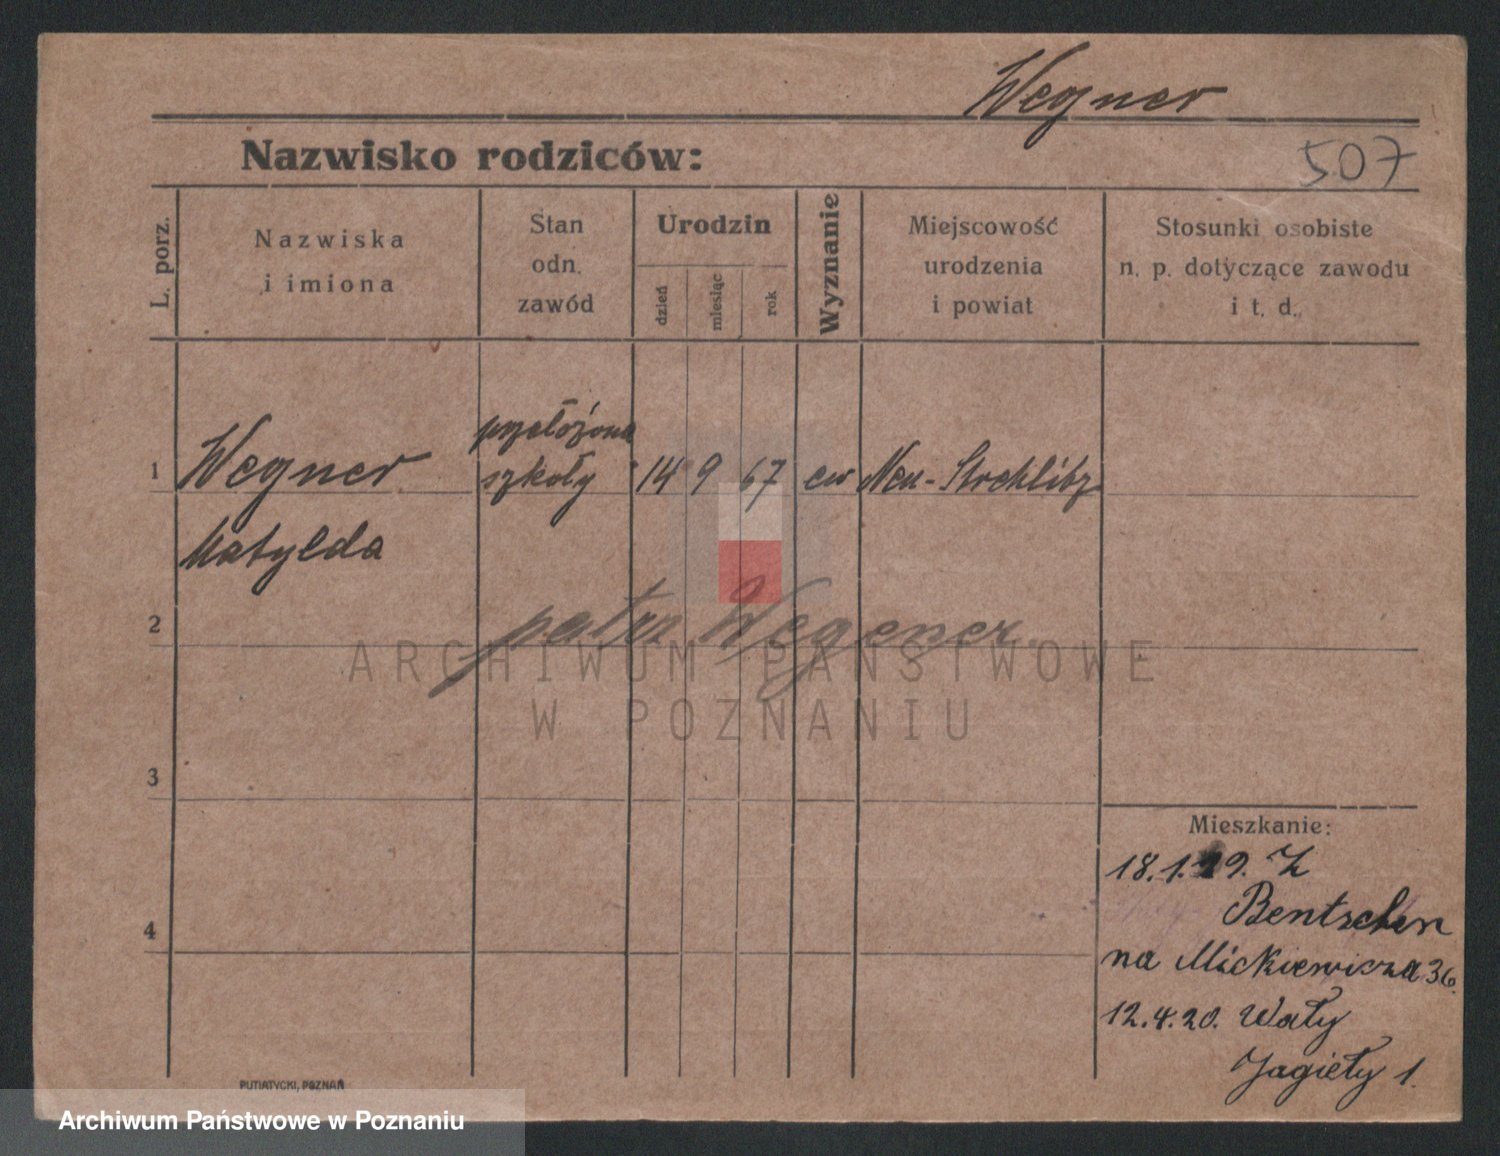 Wegner
Nazwisko rodziców:
507
L. porz.
Nazwiska
i imiona
Stan
odn.
zawód
Urodzin
dzień
miesiąc
rok
Wyznanie
Miejscowość
urodzenia
i powiat
Stosunki osobiste
n. p. dotyczące zawodu
i t. d.
1
Wegner
przełożona
szkoły
14 9 67 ew Neu-Strehlitz
Matylda
2
patrz Wegener.
ARCHIWUM PAŃSTWOWE
W POZNANIU
3
Mieszkanie:
18.1.19. Z
Bentschen
na Mickiewicza 36.
4
12.4.20. Wały
Jagiełły 1.
PUTIATYCKI, POZNAŃ
Archiwum Państwowe w Poznaniu